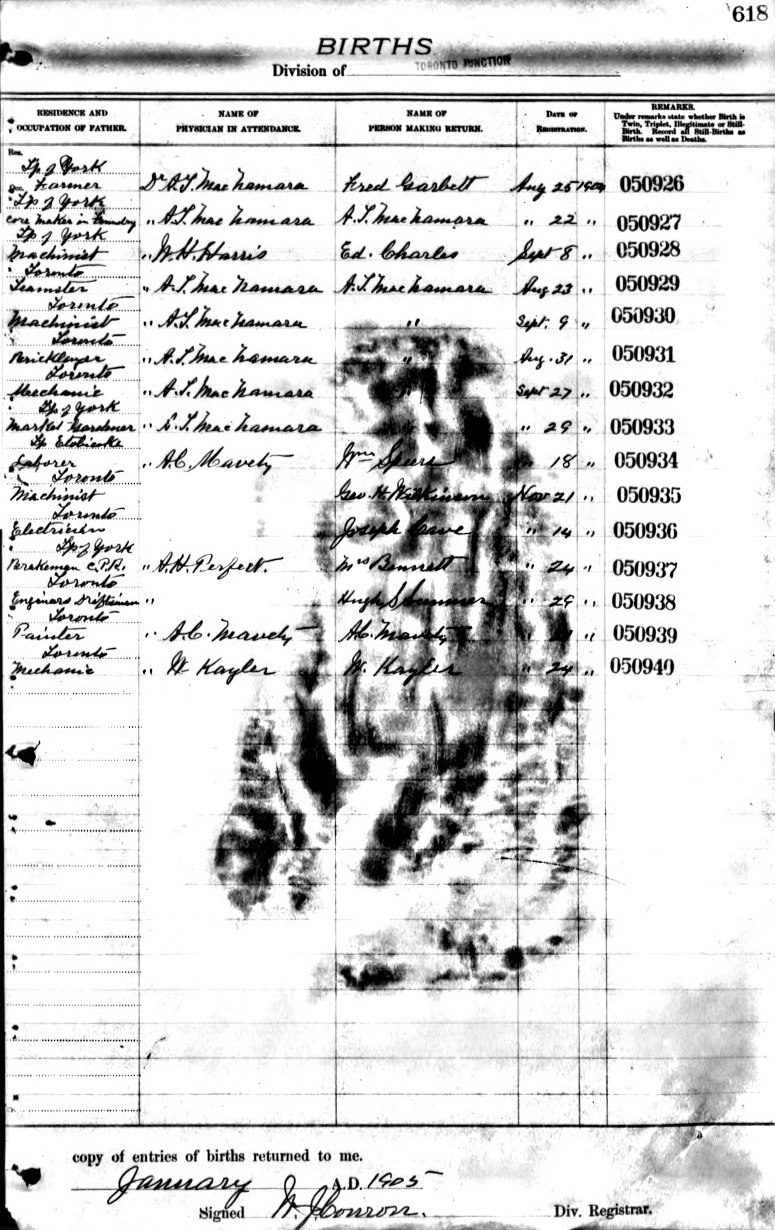 618
BIRTHS
Division of TORONTO JUNCTION
RESIDENCE AND OCCUPATION OF FATHER. NAME OF PHYSICIAN IN ATTENDANCE. NAME OF PERSON MAKING RETURN. DATE OF REGISTRATION. REMARKS. Under remarks state whether Birth is Twin, Triplet, Illegitimate or Still-Birth. Record all Still-Births as Births as well as Deaths.
Res.
Tp of York
Occ. Farmer Dr A.T. MacNamara Fred Garbett Aug 25 1904 050926
Tp of York
core maker in Foundry " A.T. MacNamara A.T. MacNamara " 22 " 050927
Tp of York
Machinist " W.H. Harris Ed. Charles Sept 8 " 050928
Toronto
Teamster " A.T. MacNamara A.T. MacNamara Aug 23 " 050929
Toronto
Machinist " A.T. MacNamara " Sept. 9 " 050930
Toronto
Bricklayer " A.T. MacNamara " Aug. 31 " 050931
Toronto
Mechanic " A.T. MacNamara " Sept 27 " 050932
Tp of York
Market Gardener " A.T. MacNamara " 29 " 050933
Tp Etobicoke
Laborer " A.C. Mavety Wm Spurs " 18 " 050934
Toronto
Machinist Geo. H. Wilkinson Nov 21 " 050935
Toronto
Electrician Joseph Cave " 14 " 050936
Tp of York
Brakeman C.P.R. " A.H. Perfect. Mrs Bennett " 24 " 050937
Toronto
Engineers Draftsman " Hugh S " 29 " 050938
Toronto
Painter " A.C. Mavety A.C. Mavety " " 050939
Toronto
Mechanic " W Kayler W. Kayler " 24 " 050940
copy of entries of births returned to me.
January A.D. 1905
Signed W. J. Conron. Div. Registrar.